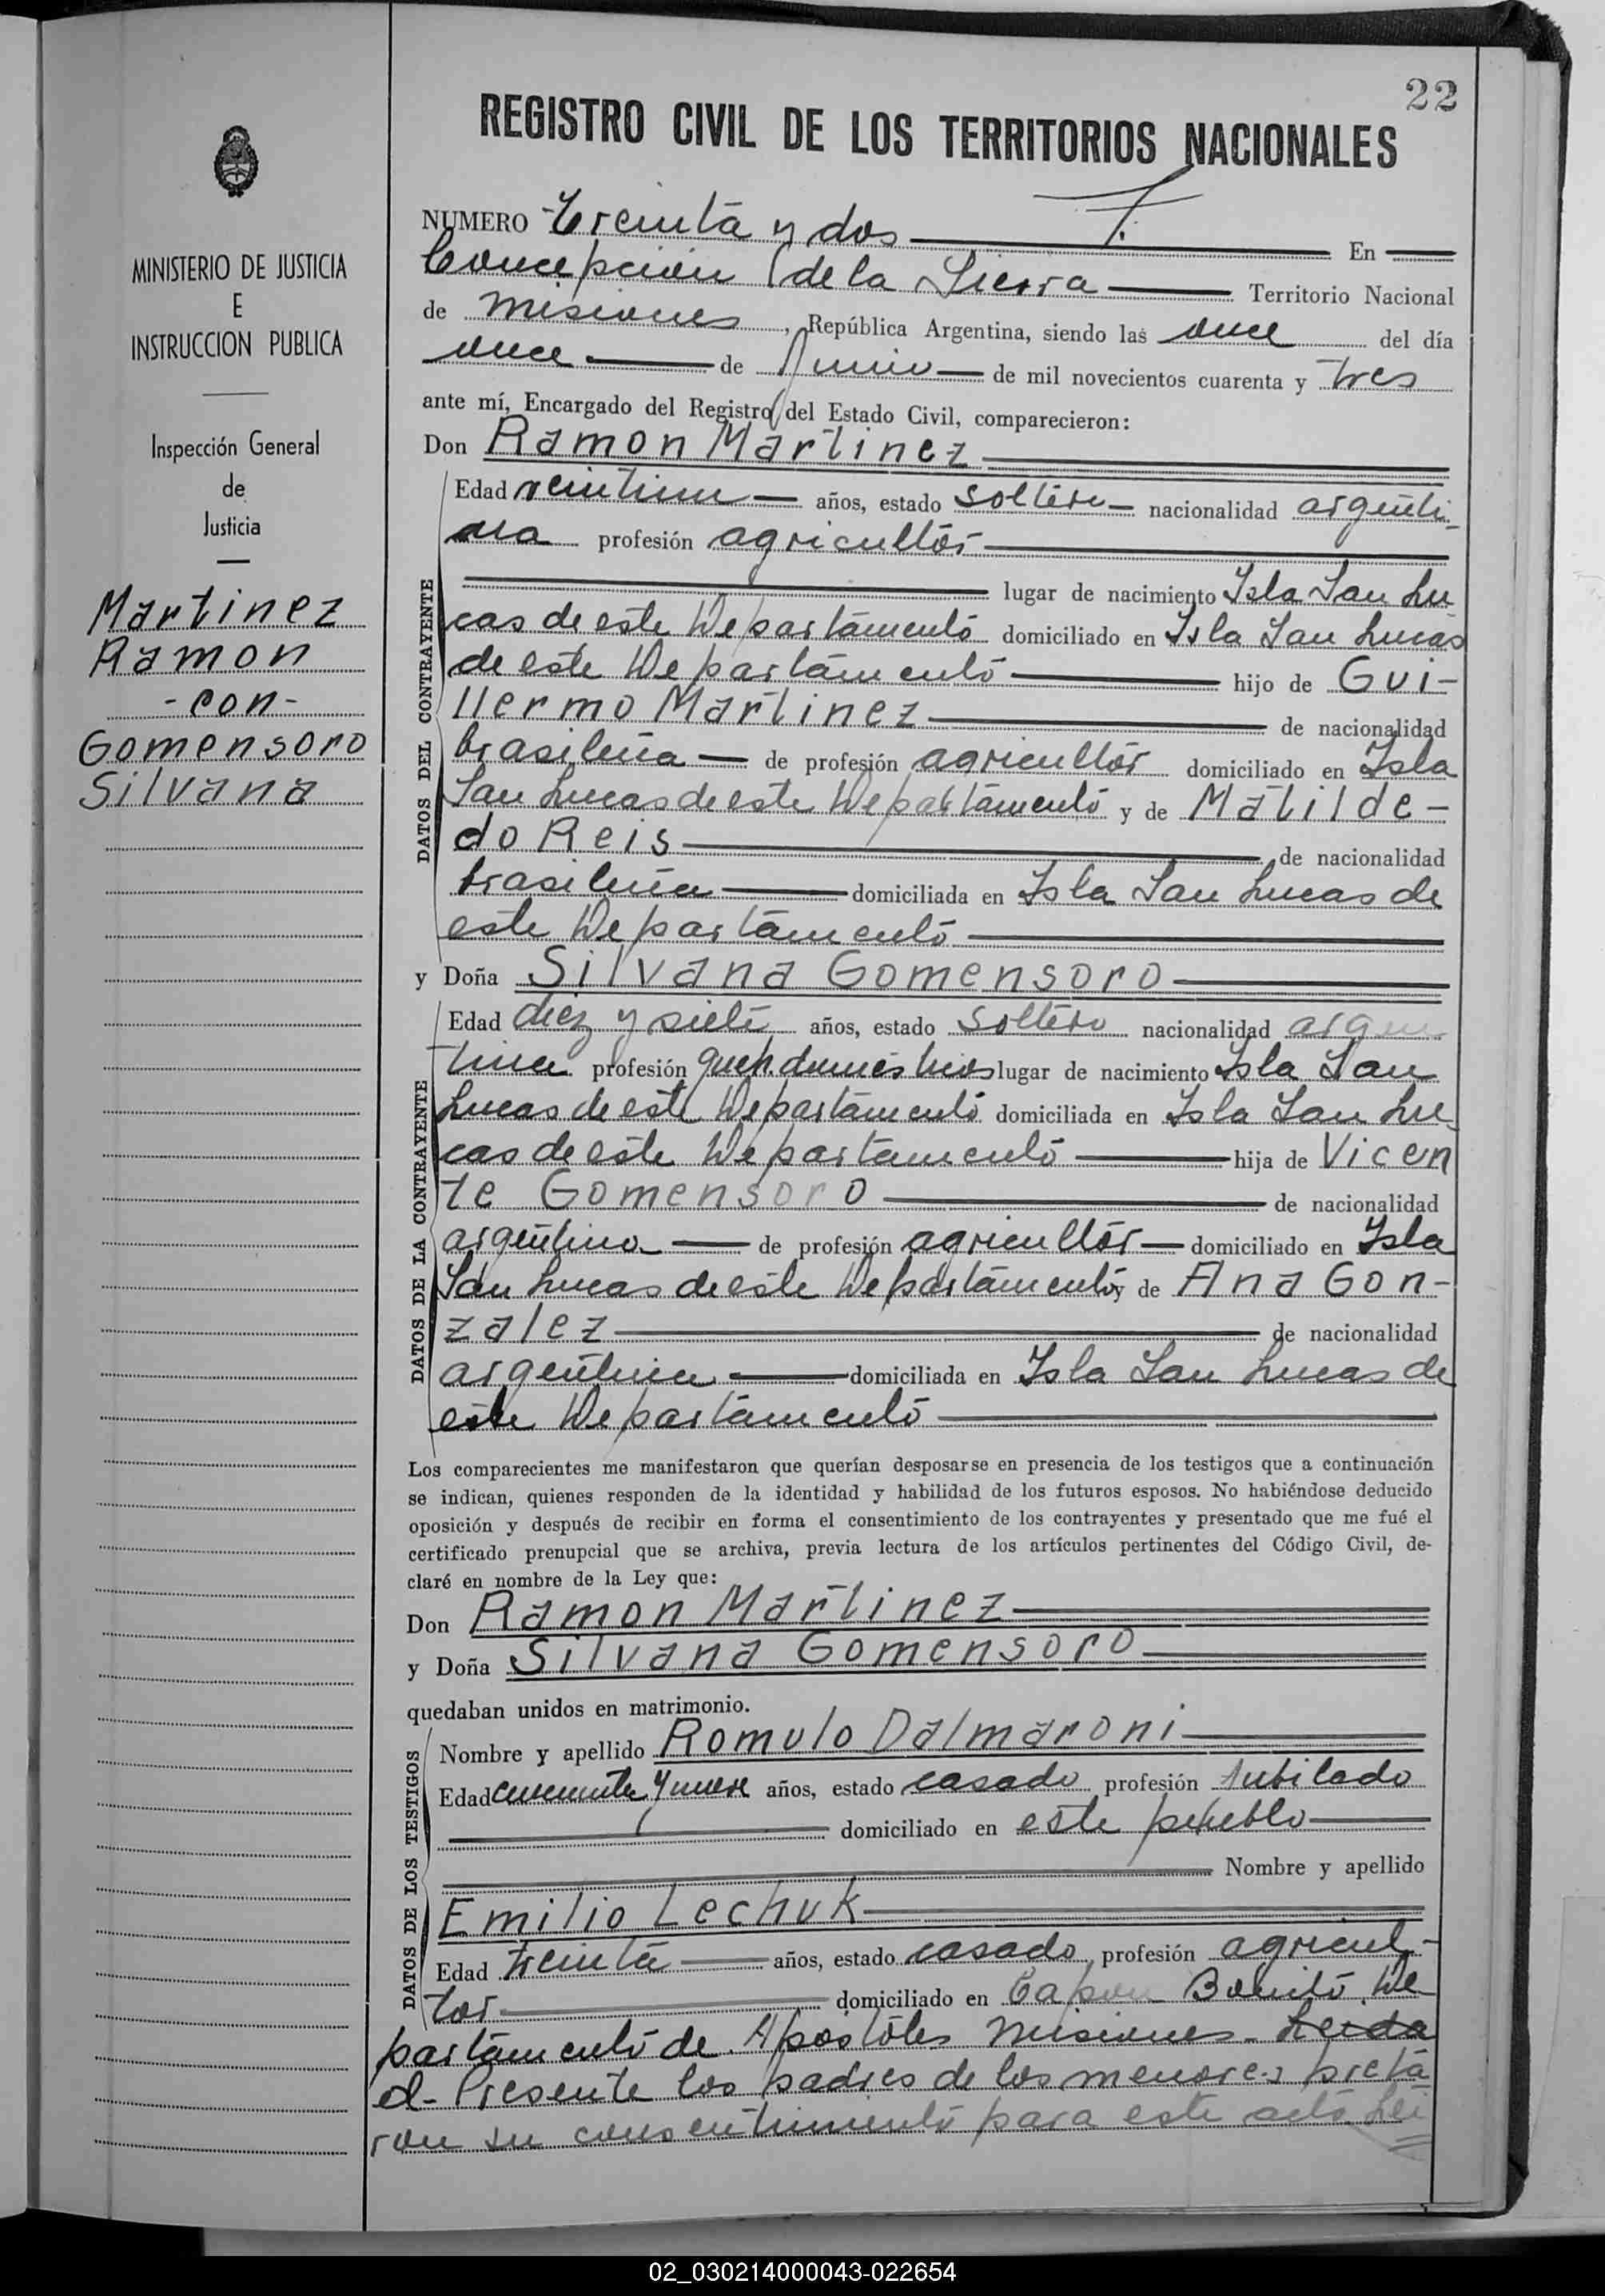 22
REGISTRO CIVIL DE LOS TERRITORIOS NACIONALES
MINISTERIO DE JUSTICIA
E
INSTRUCCION PUBLICA
Inspección General
de
Justicia
Martinez
Ramon
- con -
Gomensoro
Silvana
NUMERO Treinta y dos En
Concepcion de la Sierra Territorio Nacional
de Misiones, República Argentina, siendo las once del día
once de Junio de mil novecientos cuarenta y tres
ante mí, Encargado del Registro del Estado Civil, comparecieron:
Don Ramon Martinez
DATOS DEL CONTRAYENTE
Edad veintiun años, estado soltero nacionalidad argenti-
na profesión agricultor
lugar de nacimiento Isla San Lu
cas de este Departamento domiciliado en Isla San Lucas
de este Departamento hijo de Gui-
llermo Martinez de nacionalidad
brasileña de profesión agricultor domiciliado en Isla
San Lucas de este Departamento y de Matilde-
do Reis de nacionalidad
brasileña domiciliada en Isla San Lucas de
este Departamento
y Doña Silvana Gomensoro
DATOS DE LA CONTRAYENTE
Edad diez y siete años, estado soltero nacionalidad argen
tina profesión queh. domésticos lugar de nacimiento Isla San
Lucas de este Departamento domiciliada en Isla San Lu-
cas de este Departamento hija de Vicen
te Gomensoro de nacionalidad
argentino de profesión agricultor domiciliado en Isla
San Lucas de este Departamento y de Ana Gon-
zalez de nacionalidad
argentina domiciliada en Isla San Lucas de
este Departamento
Los comparecientes me manifestaron que querían desposarse en presencia de los testigos que a continuación
se indican, quienes responden de la identidad y habilidad de los futuros esposos. No habiéndose deducido
oposición y después de recibir en forma el consentimiento de los contrayentes y presentado que me fué el
certificado prenupcial que se archiva, previa lectura de los artículos pertinentes del Código Civil, de-
claré en nombre de la Ley que:
Don Ramon Martinez
y Doña Silvana Gomensoro
quedaban unidos en matrimonio.
DATOS DE LOS TESTIGOS
Nombre y apellido Romulo Dalmaroni
Edad cuarenta y nueve años, estado casado profesión Jubilado
domiciliado en este pueblo
Nombre y apellido
Emilio Lechuk
Edad treinta años, estado casado, profesión agricul-
tor domiciliado en Capon Bonito, De-
partamento de Apostoles Misiones - Leida
el - Presente los padres de los menores presta
ron su consentimiento para este acto Lei
02_030214000043-022654